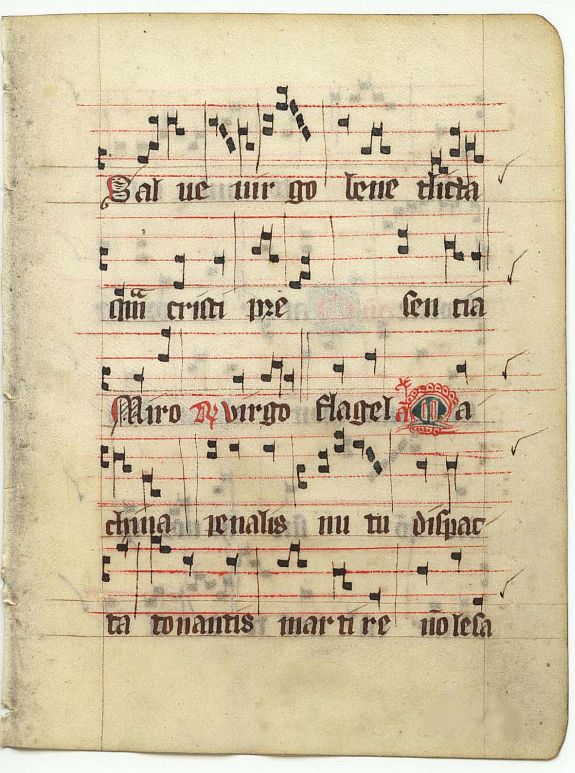 Sal ue uir go bene dicta
qm̄ cristi pre sen cia
Miro ℟ virgo flagel a M a
china penalis nu tu dispac
ta tonantis mar ti re nō lesa